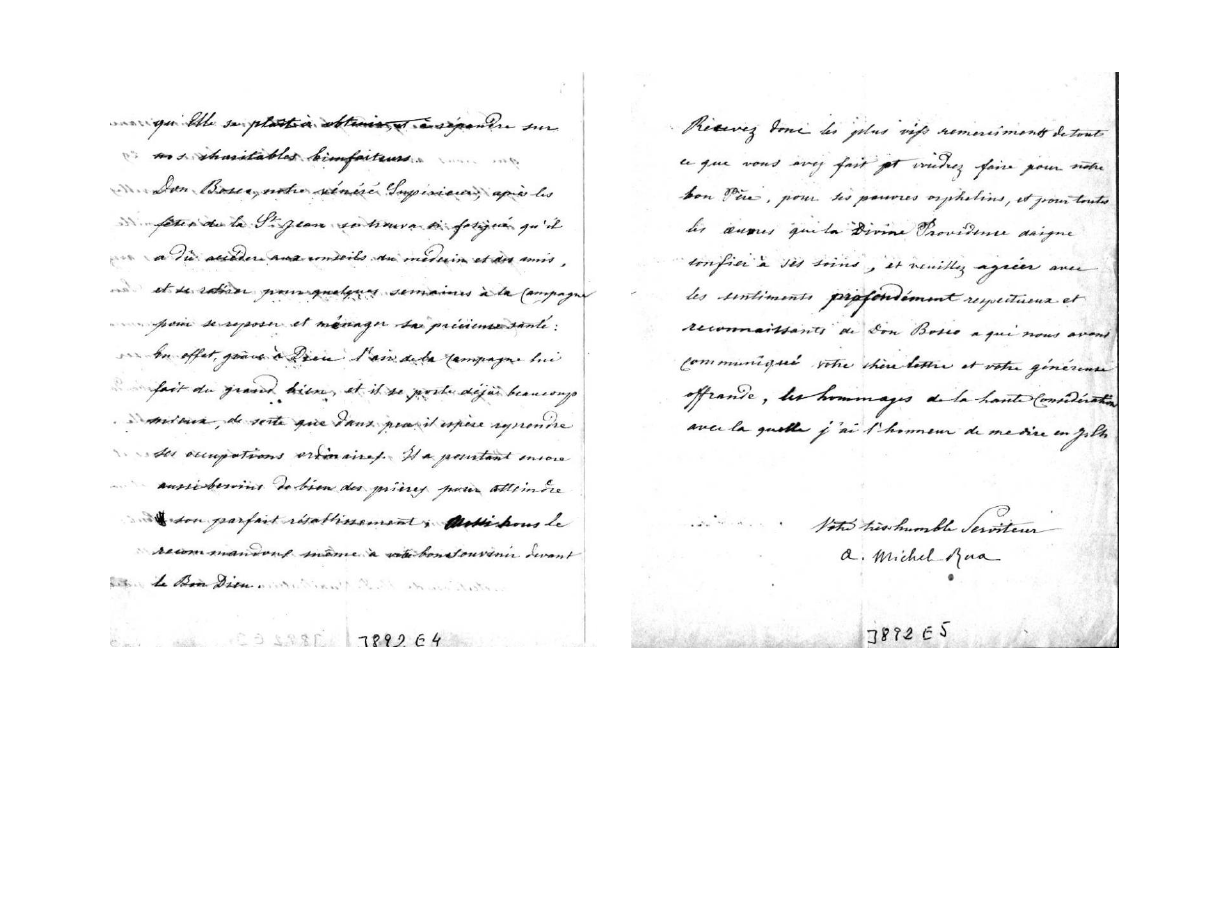 qu'Elle se plait à obtenir, et à répandre sur
nos charitables bienfaiteurs.
Don Bosco, notre vénéré Supérieur, après les
fêtes de la St Jean se trouva si fatigué qu'il
a dû accéder aux conseils du médecin et des amis,
et se retirer pour quelques semaines à la Campagne
pour se reposer et ménager sa précieuse santé:
En effet, grâce à Dieu l'air de la Campagne lui
fait du grand bien, et il se porte déjà beaucoup
mieux, de sorte que dans peu il espère reprendre
ses occupations ordinaires. Il a pourtant encore
aussi besoins de bien des prières pour atteindre
son parfait rétablissement; Aussi nous le
recommandons même à votre bon souvenir devant
le Bon Dieu.
J892 E4
Recevez donc les plus vifs remerciments de tout
ce que vous avez fait et voudrez faire pour notre
bon Père, pour ses pauvres orphelins, et pour toutes
les œuvres que la Divine Providence daigne
confier à ses soins, et veuillez agréer avec
les sentiments profondément respectueux et
reconnaissants de Don Bosco a qui nous avons
communiqué votre chère lettre et votre généreuse
offrande, les hommages de la haute Considération
avec la quelle j'ai l'honneur de me dire en
Votre très humble Serviteur
A. Michel Rua
J892 E5